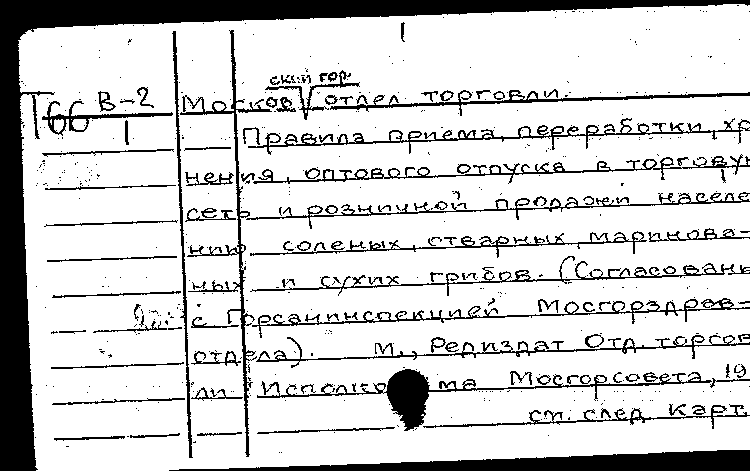 ский гор.
Т66 В-2 Москов отдел торговли.
1 Правила приема, переработки, хра
нения, оптового отпуска в торговую
сеть и розничной продажи населе
нию соленых, отварных, маринова-
ных и сухих грибов. (Согласованы
с Горсанинспекцией Мосгорздрав-
отдела). М., Редиздат Отд. торгов
ли Исполко ма Мосгорсовета, 19
см. след. карт.